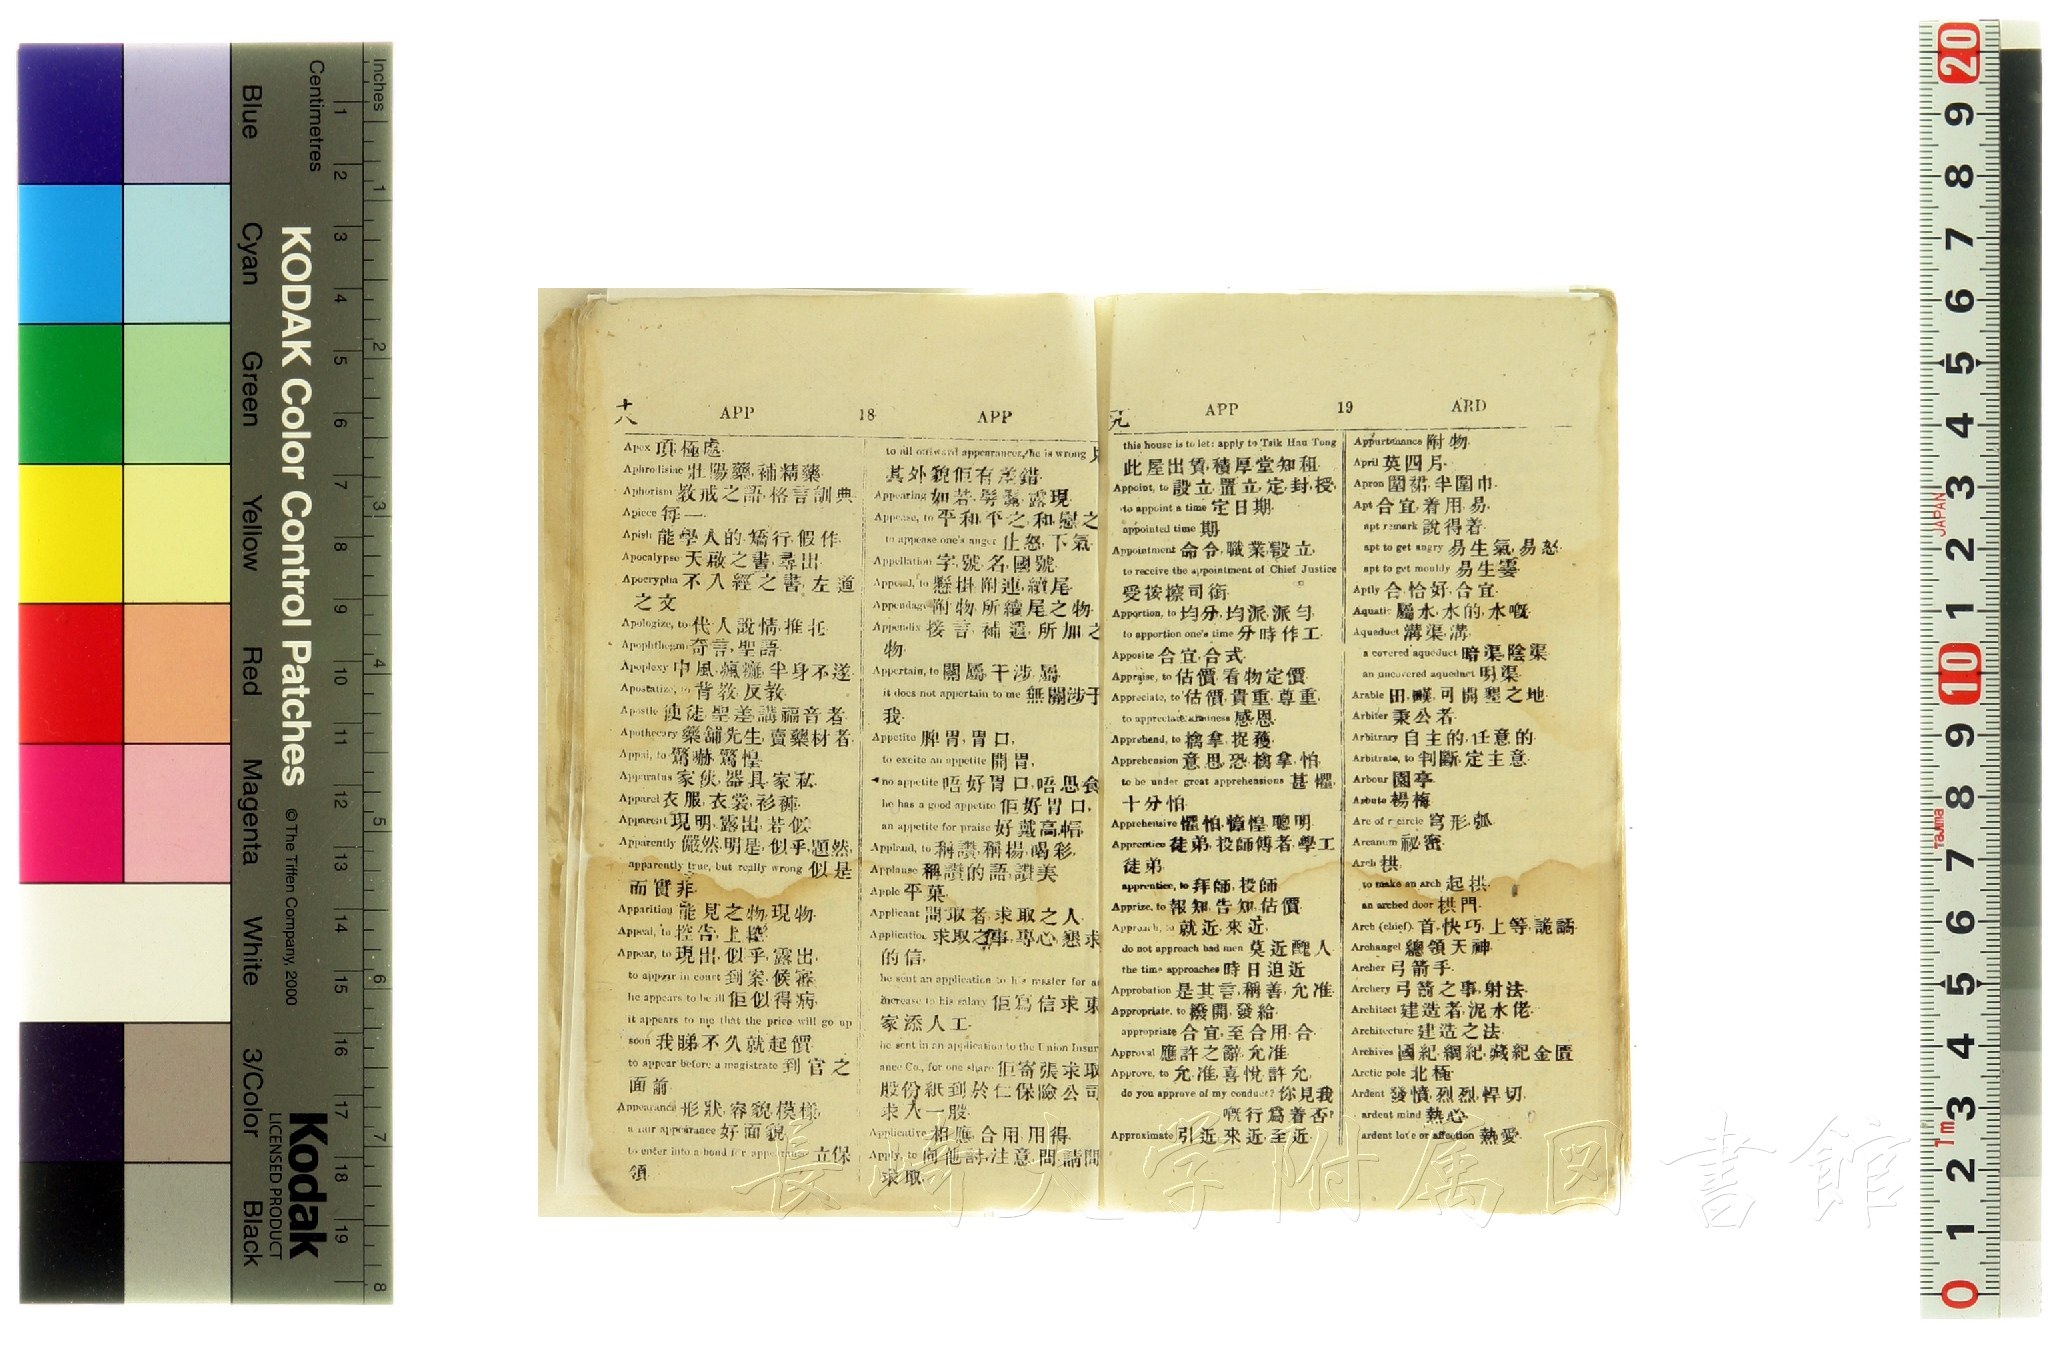 十八 APP 18 APP
Apex 頂,極處.
Aphrodisiac 壯陽藥,補精藥.
Aphorism 教戒之語,格言訓典
Apiece 每一.
Apish 能學人的,矯行,假作.
Apocalypse 天啟之書,尋出.
Apocrypha 不入經之書,左道
之文
Apologize, to 代人說情,推托.
Apophthegm 奇言,聖語
Apoplexy 中風,瘋癱,半身不遂
Apostatize, to 背教,反教.
Apostle 使徒,聖差,講福音者.
Apothecary 藥舖先生,賣藥材者.
Appal, to 驚嚇,驚惶
Apparatus 家伙,器具,家私.
Apparel 衣服,衣裳,衫褲.
Apparent 現明,露出,若似.
Apparently 儼然,明是,似乎,顯然,
apparently true, but really wrong 似是
而實非.
Apparition 能見之物,現物.
Appeal, to 控告,上控.
Appear, to 現出,似乎,露出,
to appear in court 到案,候審.
he appears to be ill 佢似得病,
it appears to me that the price will go up
soon 我睇不久就起價.
to appear before a magistrate 到官之
面前.
Appearance 形狀,容貌,模樣,
a fair appearance 好面貌,
to enter into a bond for appearance 立保
領.
to all outward appearances, he is wrong
其外貌佢有差錯.
Appearing 如若,髣髴,露現.
Appease, to 平和,平之,和,慰之
to appease one's anger 止怒,下氣.
Appellation 字,號,名,國號.
Append, to 懸掛,附連,續尾.
Appendage 附物,所續尾之物.
Appendix 接言,補遺,所加之
物.
Appertain, to 關屬,干涉,屬.
it does not appertain to me 無關涉于
我.
Appetite 脾胃,胃口,
to excite an appetite 開胃,
no appetite 唔好胃口,唔思食
he has a good appetite 佢好胃口,
an appetite for praise 好戴高帽.
Applaud, to 稱讚,稱揚,喝彩,
Applause 稱讚的語,讚美
Apple 平菓.
Applicant 問取者,求取之人.
Application 求取之事,專心,懇求
的信,
he sent an application to his master for an
increase to his salary 佢寫信求東
家添人工.
he sent in an application to the Union Insur-
ance Co., for one share 佢寄張求取
股份紙到於仁保險公司
求入一股.
Applicative 相應,合用,用得.
Apply, to 向他討,注意,問,請問
求取.
APP 19 ARD
this house is to let: apply to Tsik Hau Tong
此屋出賃,積厚堂知租.
Appoint, to 設立,置立,定,封,授,
to appoint a time 定日期.
appointed time 期.
Appointment 命令,職業,設立,
to receive the appointment of Chief Justice
受按察司銜.
Apportion, to 均分,均派,派勻.
to apportion one's time 分時作工.
Apposite 合宜,合式.
Appraise, to 估價,看物定價.
Appreciate, to 估價,貴重,尊重,
to appreciate kindness 感恩.
Apprehend, to 擒拿,捉獲,
Apprehension 意思,恐,擒拿,怕.
to be under great apprehensions 甚懼,
十分怕.
Apprehensive 懼怕,惶惶,聰明.
Apprentice 徒弟,投師傅者,學工
徒弟.
apprentice, to 拜師,投師.
Apprize, to 報知,告知,估價.
Approach, to 就近,來近.
do not approach bad men 莫近醜人
the time approaches 時日迫近
Approbation 是其言,稱善,允准.
Appropriate, to 撥開,發給.
appropriate 合宜,至合用,合.
Approval 應許之辭,允准.
Approve, to 允准,喜悅,許允,
do you approve of my conduct? 你見我
嘅行為着否?
Approximate 引近,來近,至近.
Appurtenance 附物.
April 英四月.
Apron 圍裙,半圍巾.
Apt 合宜,着用,易.
apt remark 說得着.
apt to get angry 易生氣,易怒.
apt to get mouldy 易生霉.
Aptly 合,恰好,合宜.
Aquatic 屬水,水的,水嘅.
Aqueduct 溝渠,溝.
a covered aqueduct 暗渠,陰渠.
an uncovered aqueduct 明渠.
Arable 田,可開墾之地
Arbiter 秉公者.
Arbitrary 自主的,任意的.
Arbitrate, to 判斷,定主意.
Arbour 園亭
Arbute 楊梅
Arc of a circle 穹形,弧.
Arcanum 祕密.
Arch 拱.
to make an arch 起拱.
an arched door 拱門.
Arch (chief). 首,快巧,上等,詭譎.
Archangel 總領天神.
Archer 弓箭手.
Archery 弓箭之事,射法.
Architect 建造者,泥水佬.
Architecture 建造之法.
Archives 國紀,綱紀,藏紀金匱
Arctic pole 北極.
Ardent 發憤,烈烈,悍切.
ardent mind 熱心.
ardent love or affection 熱愛.
長崎大学附属図書館
Inches
Centimetres
KODAK Color Control Patches
© The Tiffen Company, 2000
Kodak
LICENSED PRODUCT
Blue Cyan Green Yellow Red Magenta White 3/Color Black
1 2 3 4 5 6 7 8 9 10 11 12 13 14 15 16 17 18 19
1 2 3 4 5 6 7 8
20 9 8 7 6 5 4 3 2 1 10 9 8 7 6 5 4 3 2 1 0
JAPAN
Tajima
1m